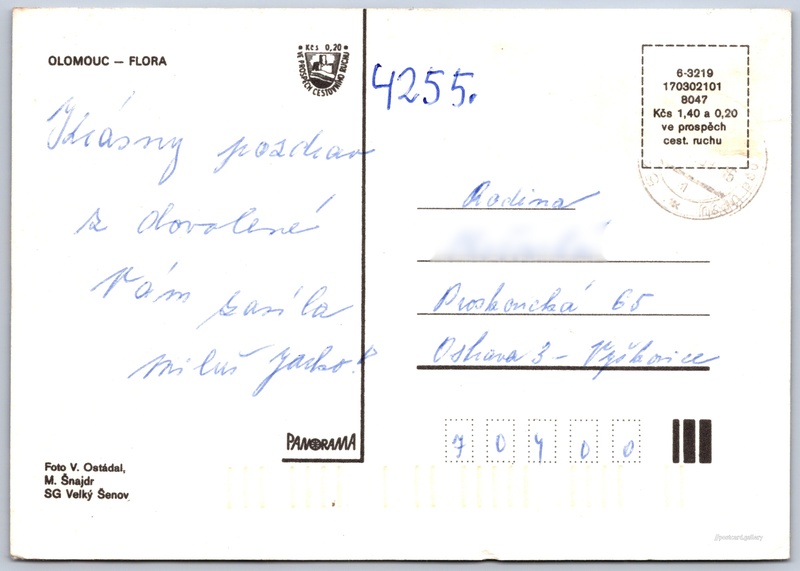 OLOMOUC — FLORA
Kčs 0,20
VE PROSPĚCH CESTOVNÍHO RUCHU
4255.
6-3219
170302101
8047
Kčs 1,40 a 0,20
ve prospěch
cest. ruchu
Krásny pozdrav
z dovolené
Vám zasíla
Miluš
Rodina
Proskovická 65
Ostrava 3 - Výškovice
70400
PANORAMA
Foto V. Ostádal,
M. Šnajdr
SG Velký Šenov
//postcard.gallery